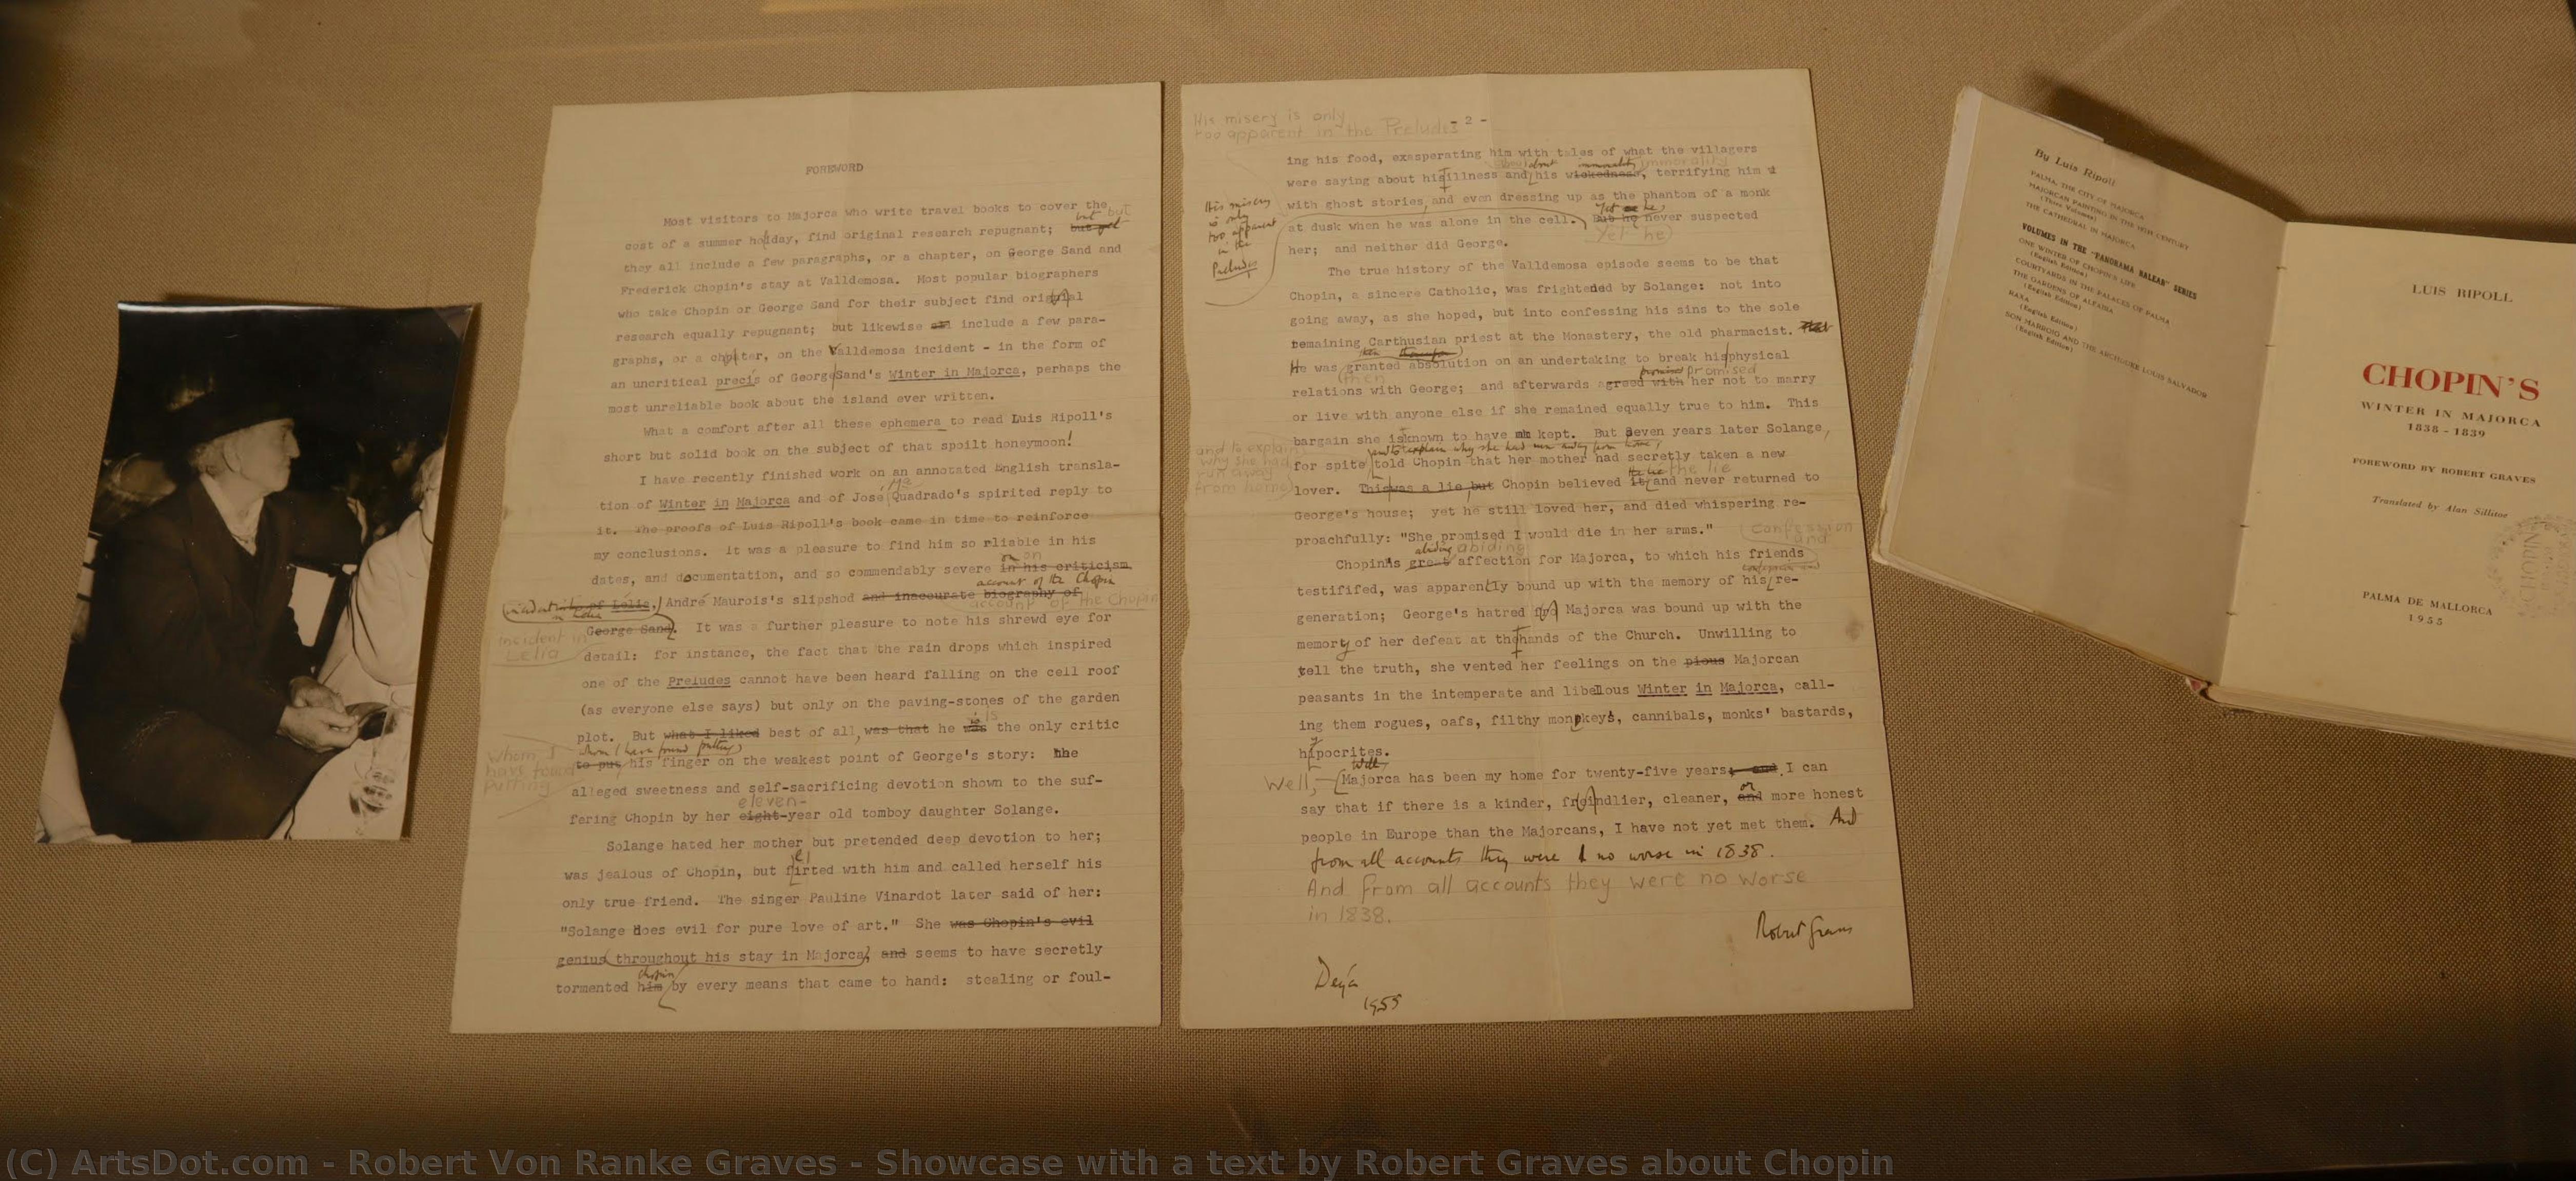 FOREWORD
Most visitors to Majorca who write travel books to cover the
but but
cost of a summer holiday, find original research repugnant; but yet
they all include a few paragraphs, or a chapter, on George Sand and
Frederick Chopin's stay at Valldemosa. Most popular biographers
who take Chopin or George Sand for their subject find original
research equally repugnant; but likewise all include a few para-
graphs, or a chapter, on the Valldemosa incident - in the form of
an uncritical precis of George Sand's Winter in Majorca, perhaps the
most unreliable book about the island ever written.
What a comfort after all these ephemera to read Luis Ripoll's
short but solid book on the subject of that spoilt honeymoon!
I have recently finished work on an annotated English transla-
Ma
tion of Winter in Majorca and of José Quadrado's spirited reply to
it. The proofs of Luis Ripoll's book came in time to reinforce
my conclusions. It was a pleasure to find him so rliable in his
on on
dates, and documentation, and so commendably severe in his criticism
account of the Chopin
of Lelia, André Maurois's slipshod and inaccurate biography of
incident in Lelia
account of the Chopin
George Sand. It was a further pleasure to note his shrewd eye for
incident in
Lelia
detail: for instance, the fact that the rain drops which inspired
one of the Preludes cannot have been heard falling on the cell roof
(as everyone else says) but only on the paving-stones of the garden
is is
plot. But what I liked best of all, was that he was the only critic
whom I have found putting
whom I
have found
putting
to put his finger on the weakest point of George's story: the
alleged sweetness and self-sacrificing devotion shown to the suf-
eleven-
fering Chopin by her eight-year old tomboy daughter Solange.
Solange hated her mother but pretended deep devotion to her;
was jealous of Chopin, but flirted with him and called herself his
only true friend. The singer Pauline Vinardot later said of her:
"Solange does evil for pure love of art." She was Chopin's evil
genius throughout his stay in Majorca, and seems to have secretly
Chopin
tormented him by every means that came to hand: stealing or foul-
His misery is only
too apparent in the Preludes
- 2 -
ing his food, exasperating him with tales of what the villagers
about immorality immorality
were saying about his illness and his wickedness, terrifying him
His misery
is only
too apparent
in the
Preludes
with ghost stories, and even dressing up as the phantom of a monk
Yet he
at dusk when he was alone in the cell. But he never suspected
Yet he
her; and neither did George.
The true history of the Valldemosa episode seems to be that
Chopin, a sincere Catholic, was frightened by Solange: not into
going away, as she hoped, but into confessing his sins to the sole
remaining Carthusian priest at the Monastery, the old pharmacist.
then
He was granted absolution on an undertaking to break his physical
then
promised promised
relations with George; and afterwards agreed with her not to marry
or live with anyone else if she remained equally true to him. This
bargain she is known to have kept. But seven years later Solange,
and to explain why she had run away from home,
and to explain
why she had
run away
from home
for spite told Chopin that her mother had secretly taken a new
the lie the lie
lover. This was a lie, but Chopin believed it, and never returned to
George's house; yet he still loved her, and died whispering re-
proachfully: "She promised I would die in her arms."
confession
and
abiding abiding
Chopin's great affection for Majorca, to which his friends
confession and
testififed, was apparently bound up with the memory of his re-
generation; George's hatred for Majorca was bound up with the
memory of her defeat at the hands of the Church. Unwilling to
tell the truth, she vented her feelings on the pious Majorcan
peasants in the intemperate and libellous Winter in Majorca, call-
ing them rogues, oafs, filthy monpkeys, cannibals, monks' bastards,
hypocrites.
Well,
Well, Majorca has been my home for twenty-five years; and I can
or
say that if there is a kinder, friendlier, cleaner, and more honest
people in Europe than the Majorcans, I have not yet met them. And
from all accounts they were no worse in 1838.
And from all accounts they were no worse
in 1838.
Robert Graves
Deyá
1955
By Luis Ripoll
PALMA, THE CITY OF MAJORCA
MAJORCAN PAINTING IN THE 19TH CENTURY
(Three Volumes)
THE CATHEDRAL IN MAJORCA
VOLUMES IN THE "PANORAMA BALEAR" SERIES
ONE WINTER OF CHOPIN'S LIFE
(English Edition)
COURTYARDS IN THE PALACES OF PALMA
THE GARDENS OF ALFABIA
(English Edition)
RAXA
(English Edition)
SON MARROIG AND THE ARCHDUKE LOUIS SALVADOR
(English Edition)
LUIS RIPOLL
CHOPIN'S
WINTER IN MAJORCA
1838 - 1839
FOREWORD BY ROBERT GRAVES
Translated by Alan Sillitoe
PALMA DE MALLORCA
1955
CHOPIN
(C) ArtsDot.com - Robert Von Ranke Graves - Showcase with a text by Robert Graves about Chopin